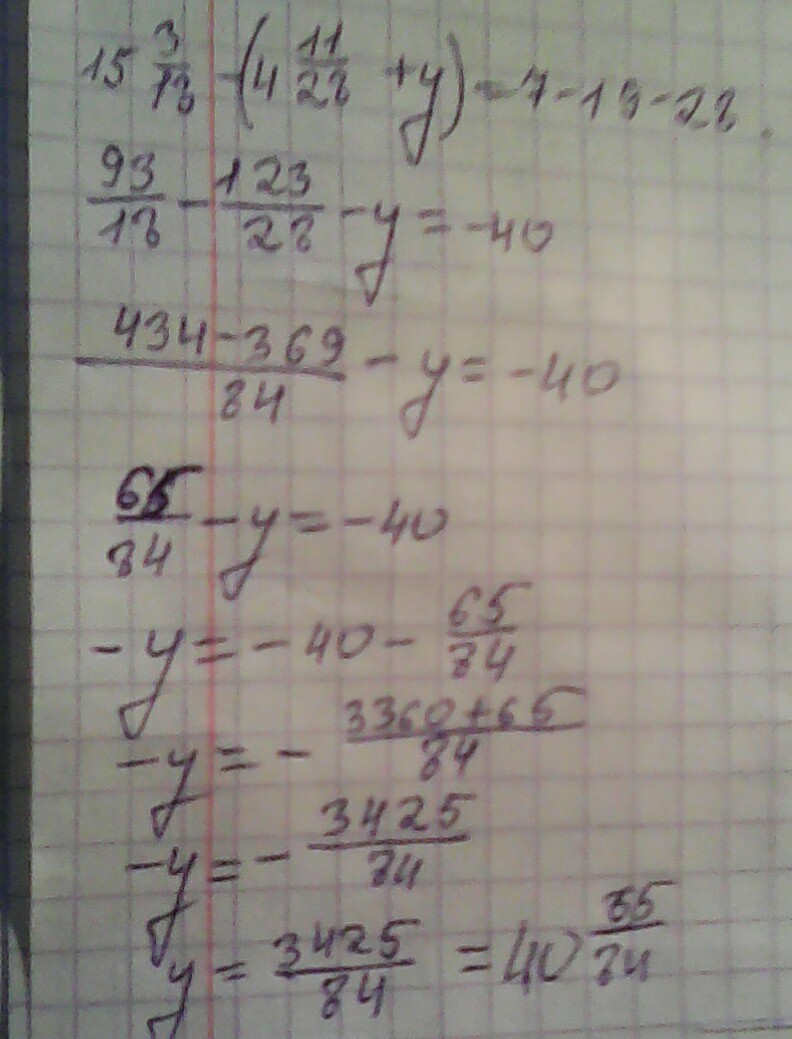 15 3/18 - (4 11/28 + y) = 7-19-28.
93/18 - 123/28 - y = -40
434-369/84 - y = -40
65/84 - y = -40
-y = -40 - 65/84
-y = - 3360+65/84
-y = - 3425/84
y = 3425/84 = 40 65/84